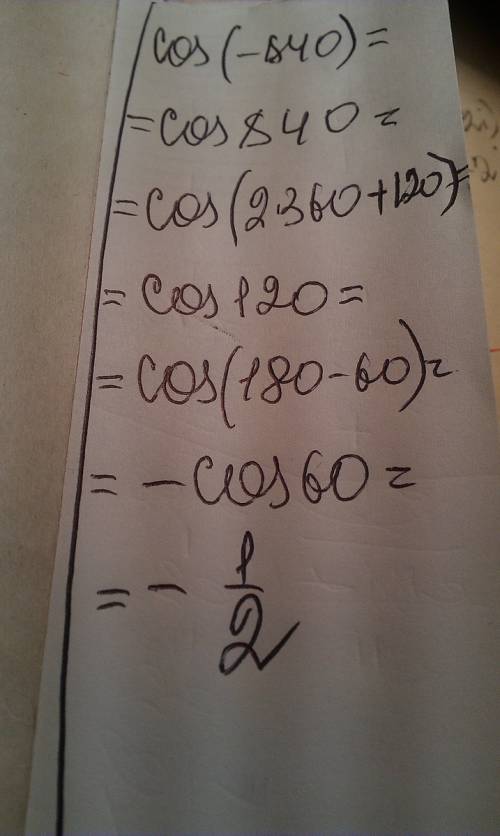 cos(-840)=
=cos840=
=cos(2·360+120)=
=cos120=
=cos(180-60)=
=-cos60=
=-1/2